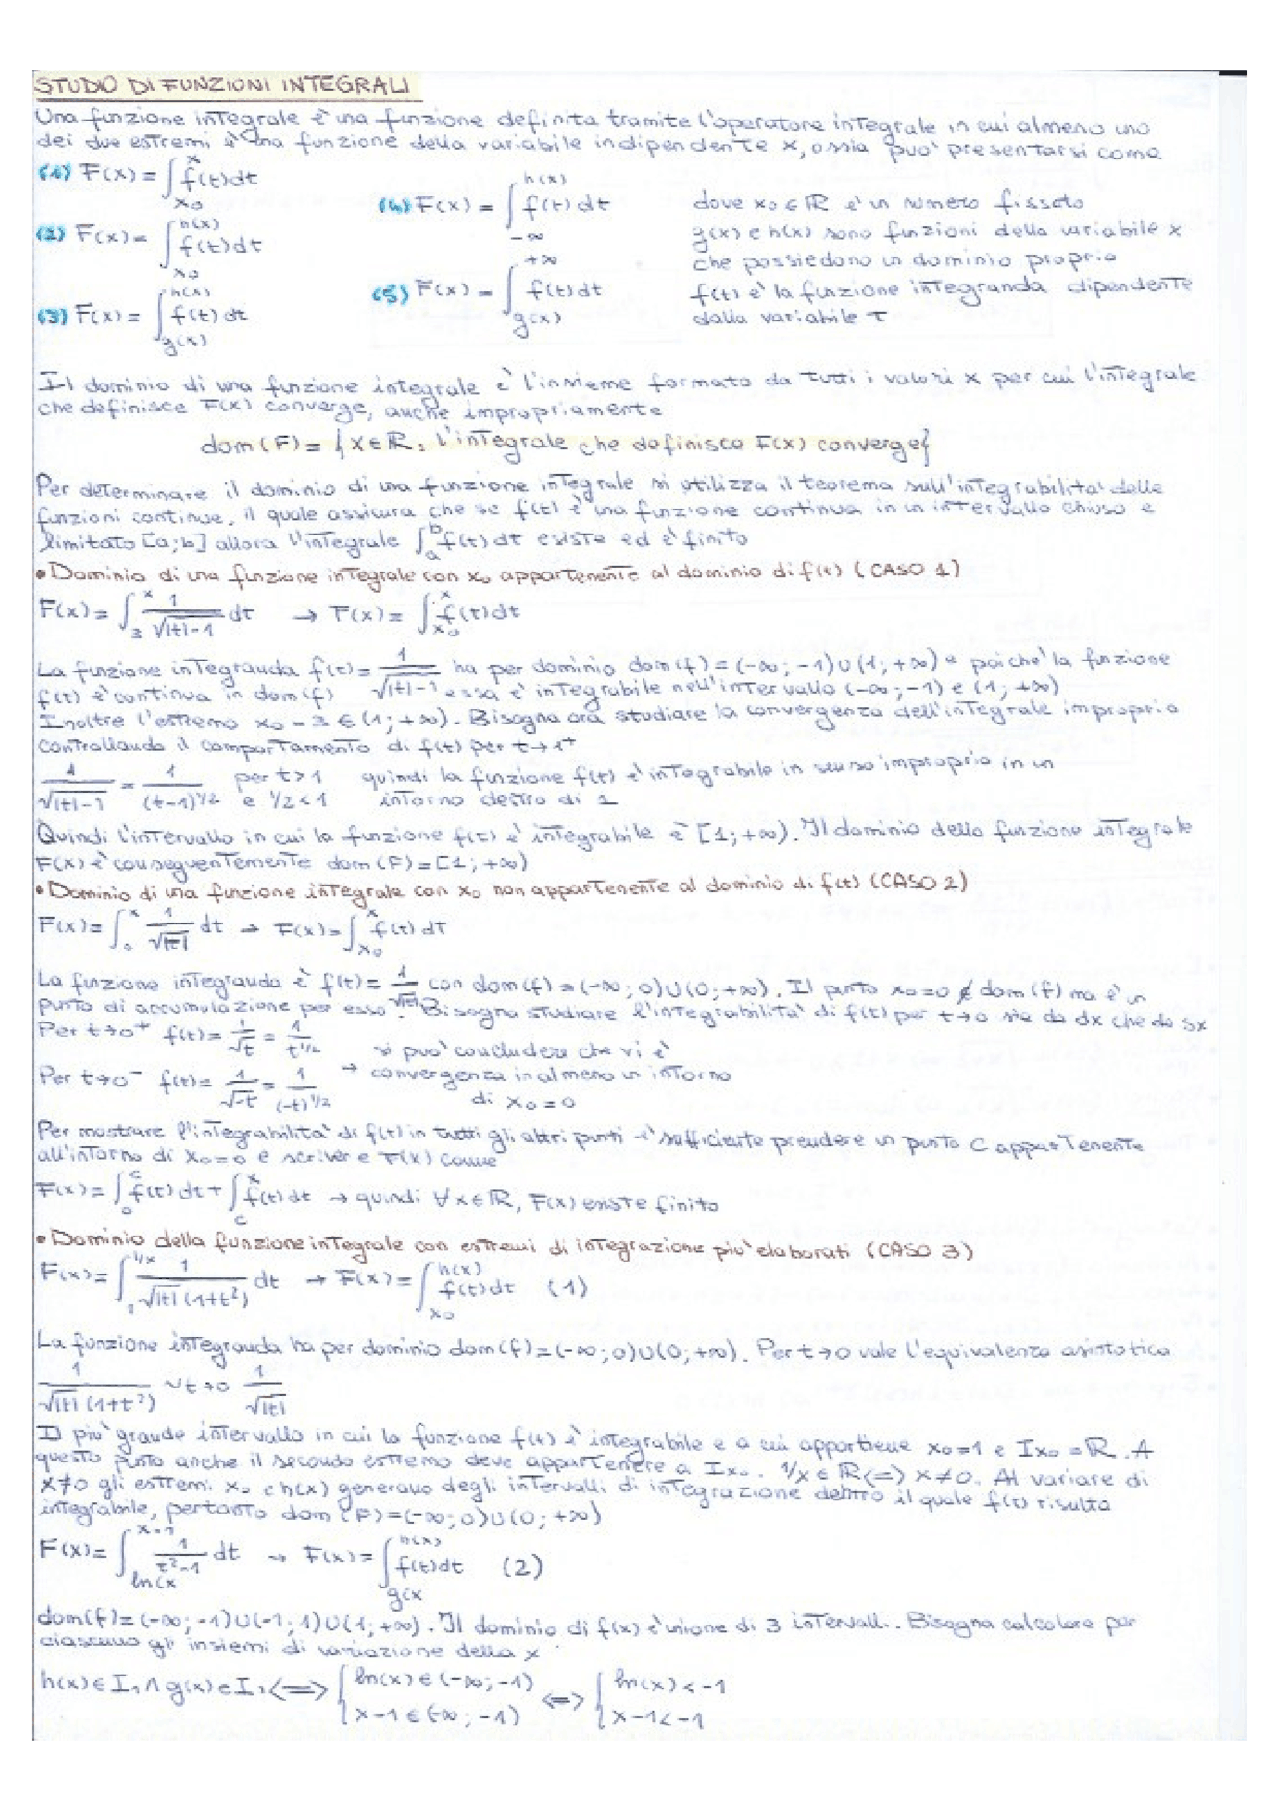 STUDIO DI FUNZIONI INTEGRALI
Una funzione integrale è una funzione definita tramite l'operatore integrale in cui almeno uno
dei due estremi è una funzione della variabile indipendente x, ossia può presentarsi come
(1) F(x) = ∫_{x₀}^{x} f(t)dt
(2) F(x) = ∫_{x₀}^{h(x)} f(t)dt
(3) F(x) = ∫_{g(x)}^{h(x)} f(t)dt
(4) F(x) = ∫_{-∞}^{h(x)} f(t)dt
(5) F(x) = ∫_{g(x)}^{+∞} f(t)dt
dove x₀ ∈ ℝ è un numero fissato
g(x) e h(x) sono funzioni della variabile x
che possiedono un dominio proprio
f(t) è la funzione integranda dipendente
dalla variabile t
Il dominio di una funzione integrale è l'insieme formato da tutti i valori x per cui l'integrale
che definisce F(x) converge, anche impropriamente
dom(F) = {x∈ℝ: l'integrale che definisce F(x) converge}
Per determinare il dominio di una funzione integrale si utilizza il teorema sull'integrabilità delle
funzioni continue, il quale assicura che se f(t) è una funzione continua in un intervallo chiuso e
limitato [a;b] allora l'integrale ∫_{a}^{b} f(t)dt esiste ed è finito
• Dominio di una funzione integrale con x₀ appartenente al dominio di f(t) (CASO 1)
F(x) = ∫_{2}^{x} 1/√(|t|-1) dt → F(x) = ∫_{x₀}^{x} f(t)dt
La funzione integranda f(t) = 1/√(|t|-1) ha per dominio dom(f) = (-∞;-1)∪(1;+∞) e poiché la funzione
f(t) è continua in dom(f) essa è integrabile nell'intervallo (-∞;-1) e (1;+∞)
Inoltre l'estremo x₀ = 2 ∈ (1;+∞). Bisogna ora studiare la convergenza dell'integrale improprio
controllando il comportamento di f(t) per t→1⁺
1/√(|t|-1) = 1/(t-1)^{1/2} per t>1 e 1/2<1 quindi la funzione f(t) è integrabile in senso improprio in un
intorno destro di 1
Quindi l'intervallo in cui la funzione f(t) è integrabile è [1;+∞). Il dominio della funzione integrale
F(x) è conseguentemente dom(F) = [1;+∞)
• Dominio di una funzione integrale con x₀ non appartenente al dominio di f(t) (CASO 2)
F(x) = ∫_{0}^{x} 1/√|t| dt → F(x) = ∫_{x₀}^{x} f(t)dt
La funzione integranda è f(t) = 1/√|t| con dom(f) = (-∞;0)∪(0;+∞). Il punto x₀=0 ∉ dom(f) ma è un
punto di accumulazione per esso. Bisogna studiare l'integrabilità di f(t) per t→0 sia da dx che da sx
Per t→0⁺ f(t) = 1/√t = 1/t^{1/2}
Per t→0⁻ f(t) = 1/√-t = 1/(-t)^{1/2}
→ si può concludere che vi è
convergenza in almeno un intorno
di x₀=0
Per mostrare l'integrabilità di f(t) in tutti gli altri punti è sufficiente prendere un punto C appartenente
all'intorno di x₀=0 e scrivere F(x) come
F(x) = ∫_{0}^{c} f(t)dt + ∫_{c}^{x} f(t)dt → quindi ∀x∈ℝ, F(x) esiste finito
• Dominio della funzione integrale con estremi di integrazione più elaborati (CASO 3)
F(x) = ∫_{1}^{1/x} 1/(√|t|(1+t²)) dt → F(x) = ∫_{x₀}^{h(x)} f(t)dt (1)
La funzione integranda ha per dominio dom(f) = (-∞;0)∪(0;+∞). Per t→0 vale l'equivalenza asintotica
1/(√|t|(1+t²)) ~t→0 1/√|t|
Il più grande intervallo in cui la funzione f(t) è integrabile e a cui appartiene x₀=1 è Ix₀ = ℝ. A
questo punto anche il secondo estremo deve appartenere a Ix₀. 1/x ∈ ℝ <=> x≠0. Al variare di
x≠0 gli estremi x₀ e h(x) generano degli intervalli di integrazione dentro il quale f(t) risulta
integrabile, pertanto dom(F) = (-∞;0)∪(0;+∞)
F(x) = ∫_{ln(x}^{x-1} 1/(t²-1) dt → F(x) = ∫_{g(x}^{h(x)} f(t)dt (2)
dom(f) = (-∞;-1)∪(-1;1)∪(1;+∞). Il dominio di f(x) è unione di 3 intervalli. Bisogna calcolare per
ciascuno gli insiemi di variazione della x
h(x)∈I₁ ∧ g(x)∈I₁ <=> { ln(x)∈(-∞;-1) x-1∈(-∞;-1) <=> { ln(x)<-1 x-1<-1